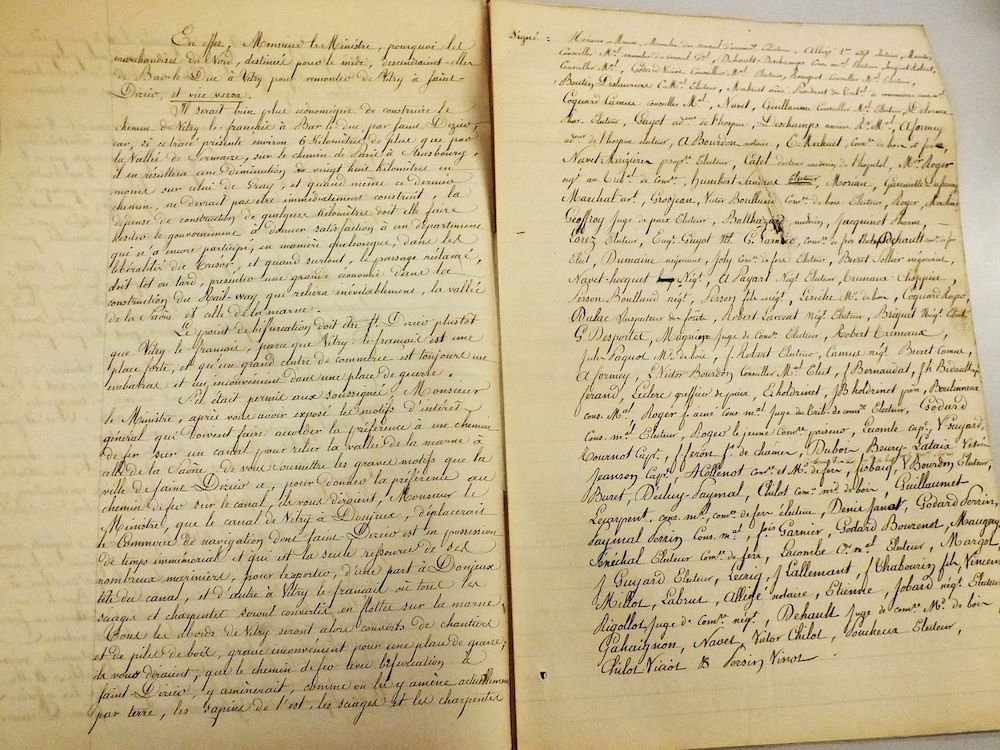 En effet, Monsieur le Ministre, pourquoi les
marchandises du Nord, destinées pour le midi, descendraient-elles
de Bar-le-Duc à Vitry pour remonter de Vitry à Saint-
Dizier, et vice versa.
Il serait bien plus économique de construire le
chemin de Vitry le français à Bar le duc, par Saint Dizier,
car, si ce tracé présente environ 6 Kilomètres de plus que par
la Vallée de Sermaize, sur le chemin de Paris à Strasbourg,
il en résultera une diminution de vingt huit kilomètres en
moins sur celui de Gray, et quand même ce dernier
chemin, ne devrait pas être immédiatement construit, la
dépense de construction de quelques kilomètres doit elle faire
hésiter le gouvernement à donner satisfaction à un département
qui n'a encore participé, en manière quelconque, dans les
libéralités du Trésor, et quand surtout, le passage réclamé,
doit tôt ou tard, présenter une grande économie dans la
construction du Rail-way qui reliera inévitablement, la vallée
de la Saône et celle de la marne.
Le point de bifurcation doit être St. Dizier plustot
que Vitry le français, parce que Vitry-le-français est une
place forte, et qu'un grand centre de commerce est toujours un
embarras et un inconvenient dans une place de guerre.
S'il était permis aux soussignés, Monsieur
le Ministre, après vous avoir exposé les motifs d'intérêt
général qui doivent faire accorder la préférence à un chemin
de fer sur un canal pour relier la vallée de la marne à
celle de la Saône, de vous soumettre les graves motifs que la
ville de Saint Dizier a, pour donner la préférence au
chemin de fer sur le canal, ils vous diraient, Monsieur le
Ministre, que le canal de Vitry à Donjeux, déplacerait
le Commerce de navigation dont Saint Dizier est en possession
de temps immémorial et qui est la seule ressource de ses
nombreux mariniers, pour le porter, d'une part à Donjeux
tête du canal, et d'autre à Vitry le français où tous les
sciages et charpentes seront convertis en flottes sur la marne.
Tous les abords de Vitry seront alors couverts de chantiers
et de piles de bois, grave inconvenient pour une place de guerre;
ils vous diraient, que le chemin de fer avec bifurcation à
Saint Dizier, y amènerait, comme on les y amène actuellement
par terre, les sapins de l'est, les sciages et les charpentes
Signé :
Membre du conseil d'arrond. Electeur,
Conseiller Mal membre du conseil Gal, Dehault Deschamps Cons. mal électeur, Jacquin Robert,
Conseiller Mal, Godard Conseiller Mal Electeur, Rouquet Conseiller Mal Electeur,
Boutin Electeur,
Coquard Camus conseiller Mal, Navet, Guillaume Conseiller Mal Electeur, Delorme
Electeur, Guyot admr de l'hospice, Deschamps ancien, A. Jormey
admr de l'hospice électeur, A. Bourdon notaire, E. Mahuet, comre de bois et fers,
Navet Maizière propre Electeur, Catel docteur médecin de l'hopital, Mce Roger
Humbert-Landrus électeur, Morian,
Marechal ar., Grosjean, Victor Boulland Comre de bois Electeur, Roger,
Geoffroy Juge de paix Electeur, Balthazard médecin, Jacquinot
Lorez Electeur, Eug. Guyot, G. Varnier, Dehault
Elect. Dumaine négociant, Joly Comre de fers Electeur, Buret Sollier négociant,
Navet-hecquet Négt, A Payart Négt Electeur,
Person Boulland négt, Person fils négt, Md de bois, Coquard
Inspecteur des forêts, Robert Laurent Négt Electeur, Briquet Négt Elect.
G Desportes, Magnien Juge de Comre Electeur, Robert Cremaux
Jules Paquot Md de bois, J. Robert Electeur, Camus négt Buret Camus,
A Jormey, L. Victor Bourdon Conseiller Mal Elect, J Bernaudat,
Ferand, Leclerc greffier de paix, E. holdrinet, JB holdrinet père,
cons. Mal, Roger J. ainé cons. mal Juge du Trib. de comre Electeur, Godard
cons. mal Electeur, Roger le jeune, Lecomte Capne, V Guyard,
Tournot Capne, Dubois, Beury-Lataix Victor
Jeanson Capne, A Collenot et Md de fers, V Bourdon Electeur,
Buret, Paymal, Chilot com. md de bois, Guillaumet
Lecarpent. cons. mal, comre de fers électeur, Denis Janot, Godard Perrin,
Paymal Perrin Cons. mal, Fçois Garnier, Godard Bourenot, Maugeon
Sénéchal Electeur Comre de fers, Lacombe Electeur, Margot,
J Guyard Electeur, Lecrig, J Lallemant, J Chabourin fils, Vincent
Millot, Labrut, Allizé notaire, Etienne, Jobard négt Electeur
Rigollot Juge de Comre négt, Dehault Juge de comre Md de bois
Gahaignon, Navet, Victor Chilot, Electeur,
Chilot Viriot & Persin Vinot.